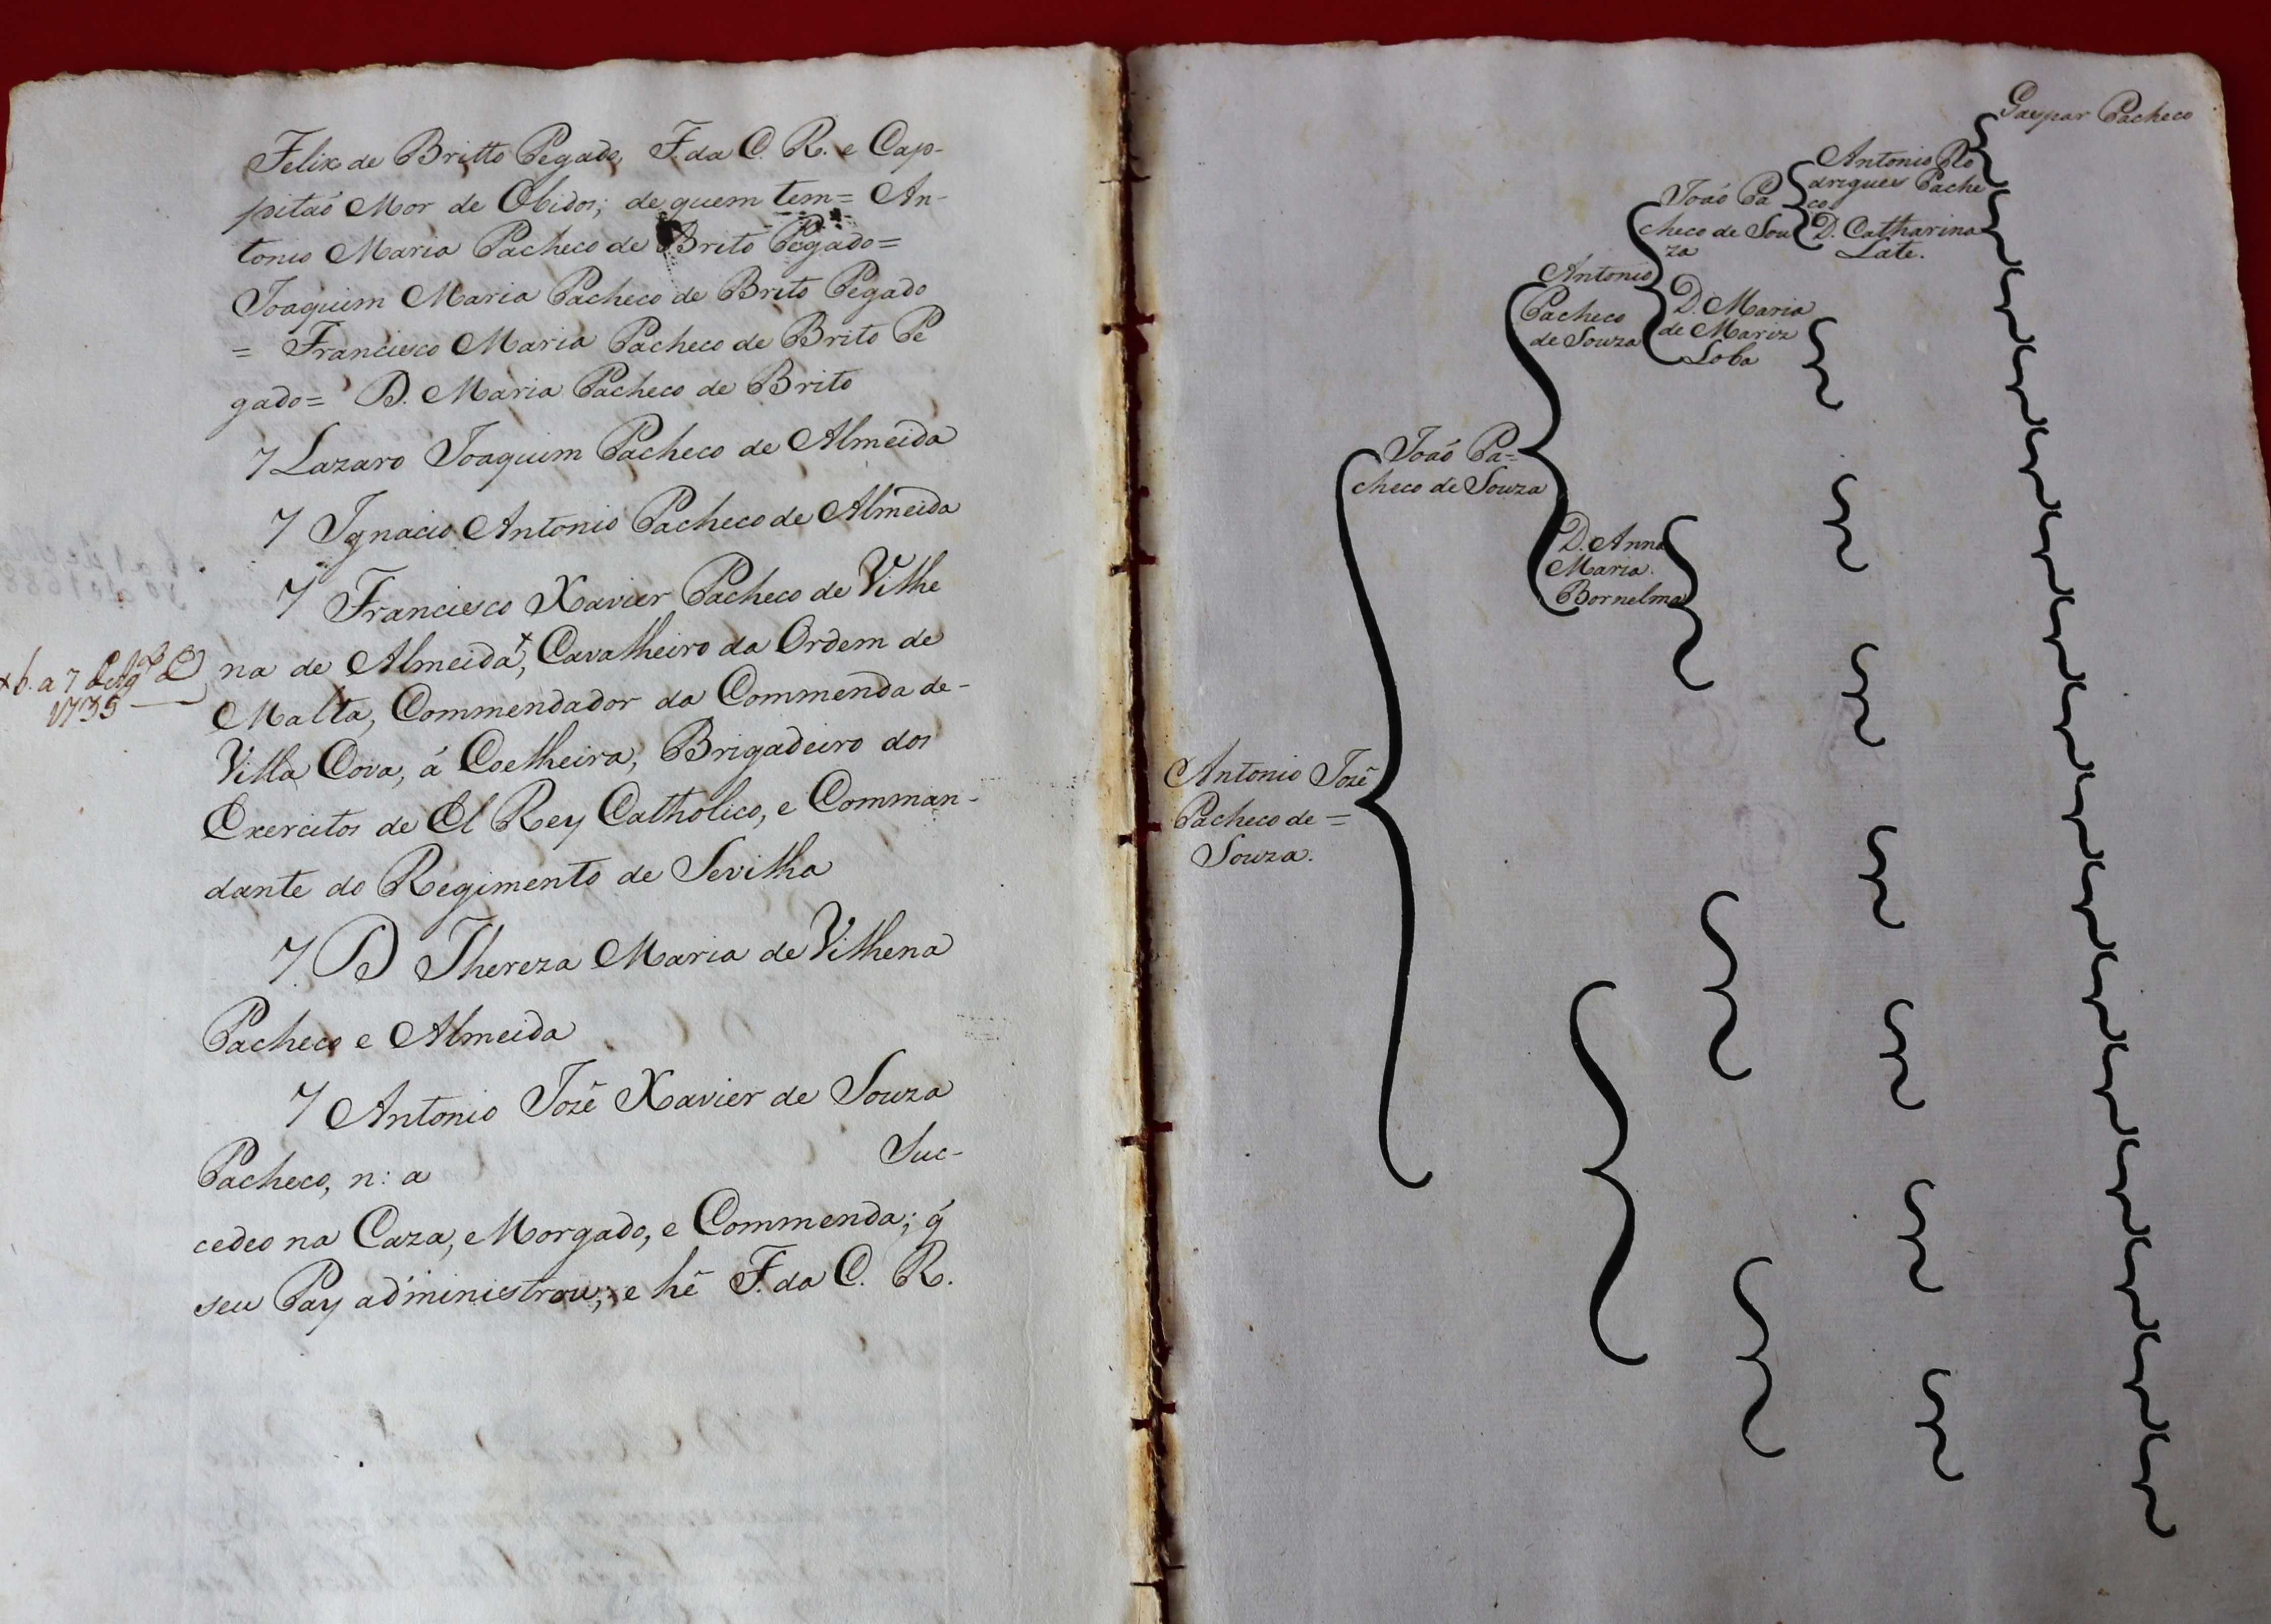 Felix de Britto Pegado, F. da C. R. e Cap-
pitaõ Mor de Obidos; de quem tem= An-
tonio Maria Pacheco de Brito Pegado=
Joaquim Maria Pacheco de Brito Pegado
= Francisco Maria Pacheco de Brito Pe
gado= D. Maria Pacheco de Brito
7 Lazaro Joaquim Pacheco de Almeida
7 Ignacio Antonio Pacheco de Almeida
7 Francisco Xavier Pacheco de Vilhe
na de Almeida, Cavalheiro da Ordem de
Malta, Commendador da Commenda de-
Villa Cova, á Coelheira, Brigadeiro dos
Exercitos de El Rey Catholico, e Comman-
dante do Regimento de Sevilha
7. D Thereza Maria de Vilhena
Pacheco e Almeida
7 Antonio Jozê Xavier de Souza
Pacheco, n: a Suc-
cedeo na Caza, e Morgado, e Commenda; q́
seu Pay administrou; e hê F. da C. R.
+ b. a 7
1735
Gaspar Pacheco
Antonio Ro
drigues Pache
co
D. Catharina
Late.
Joaõ Pa
checo de Sou
za
D. Maria
de Mariz
Loba
Antonio
Pacheco
de Souza
Joaõ Pa=
checo de Souza
D. Anna
Maria.
Bornelma
Antonio Jozê
Pacheco de =
Souza.